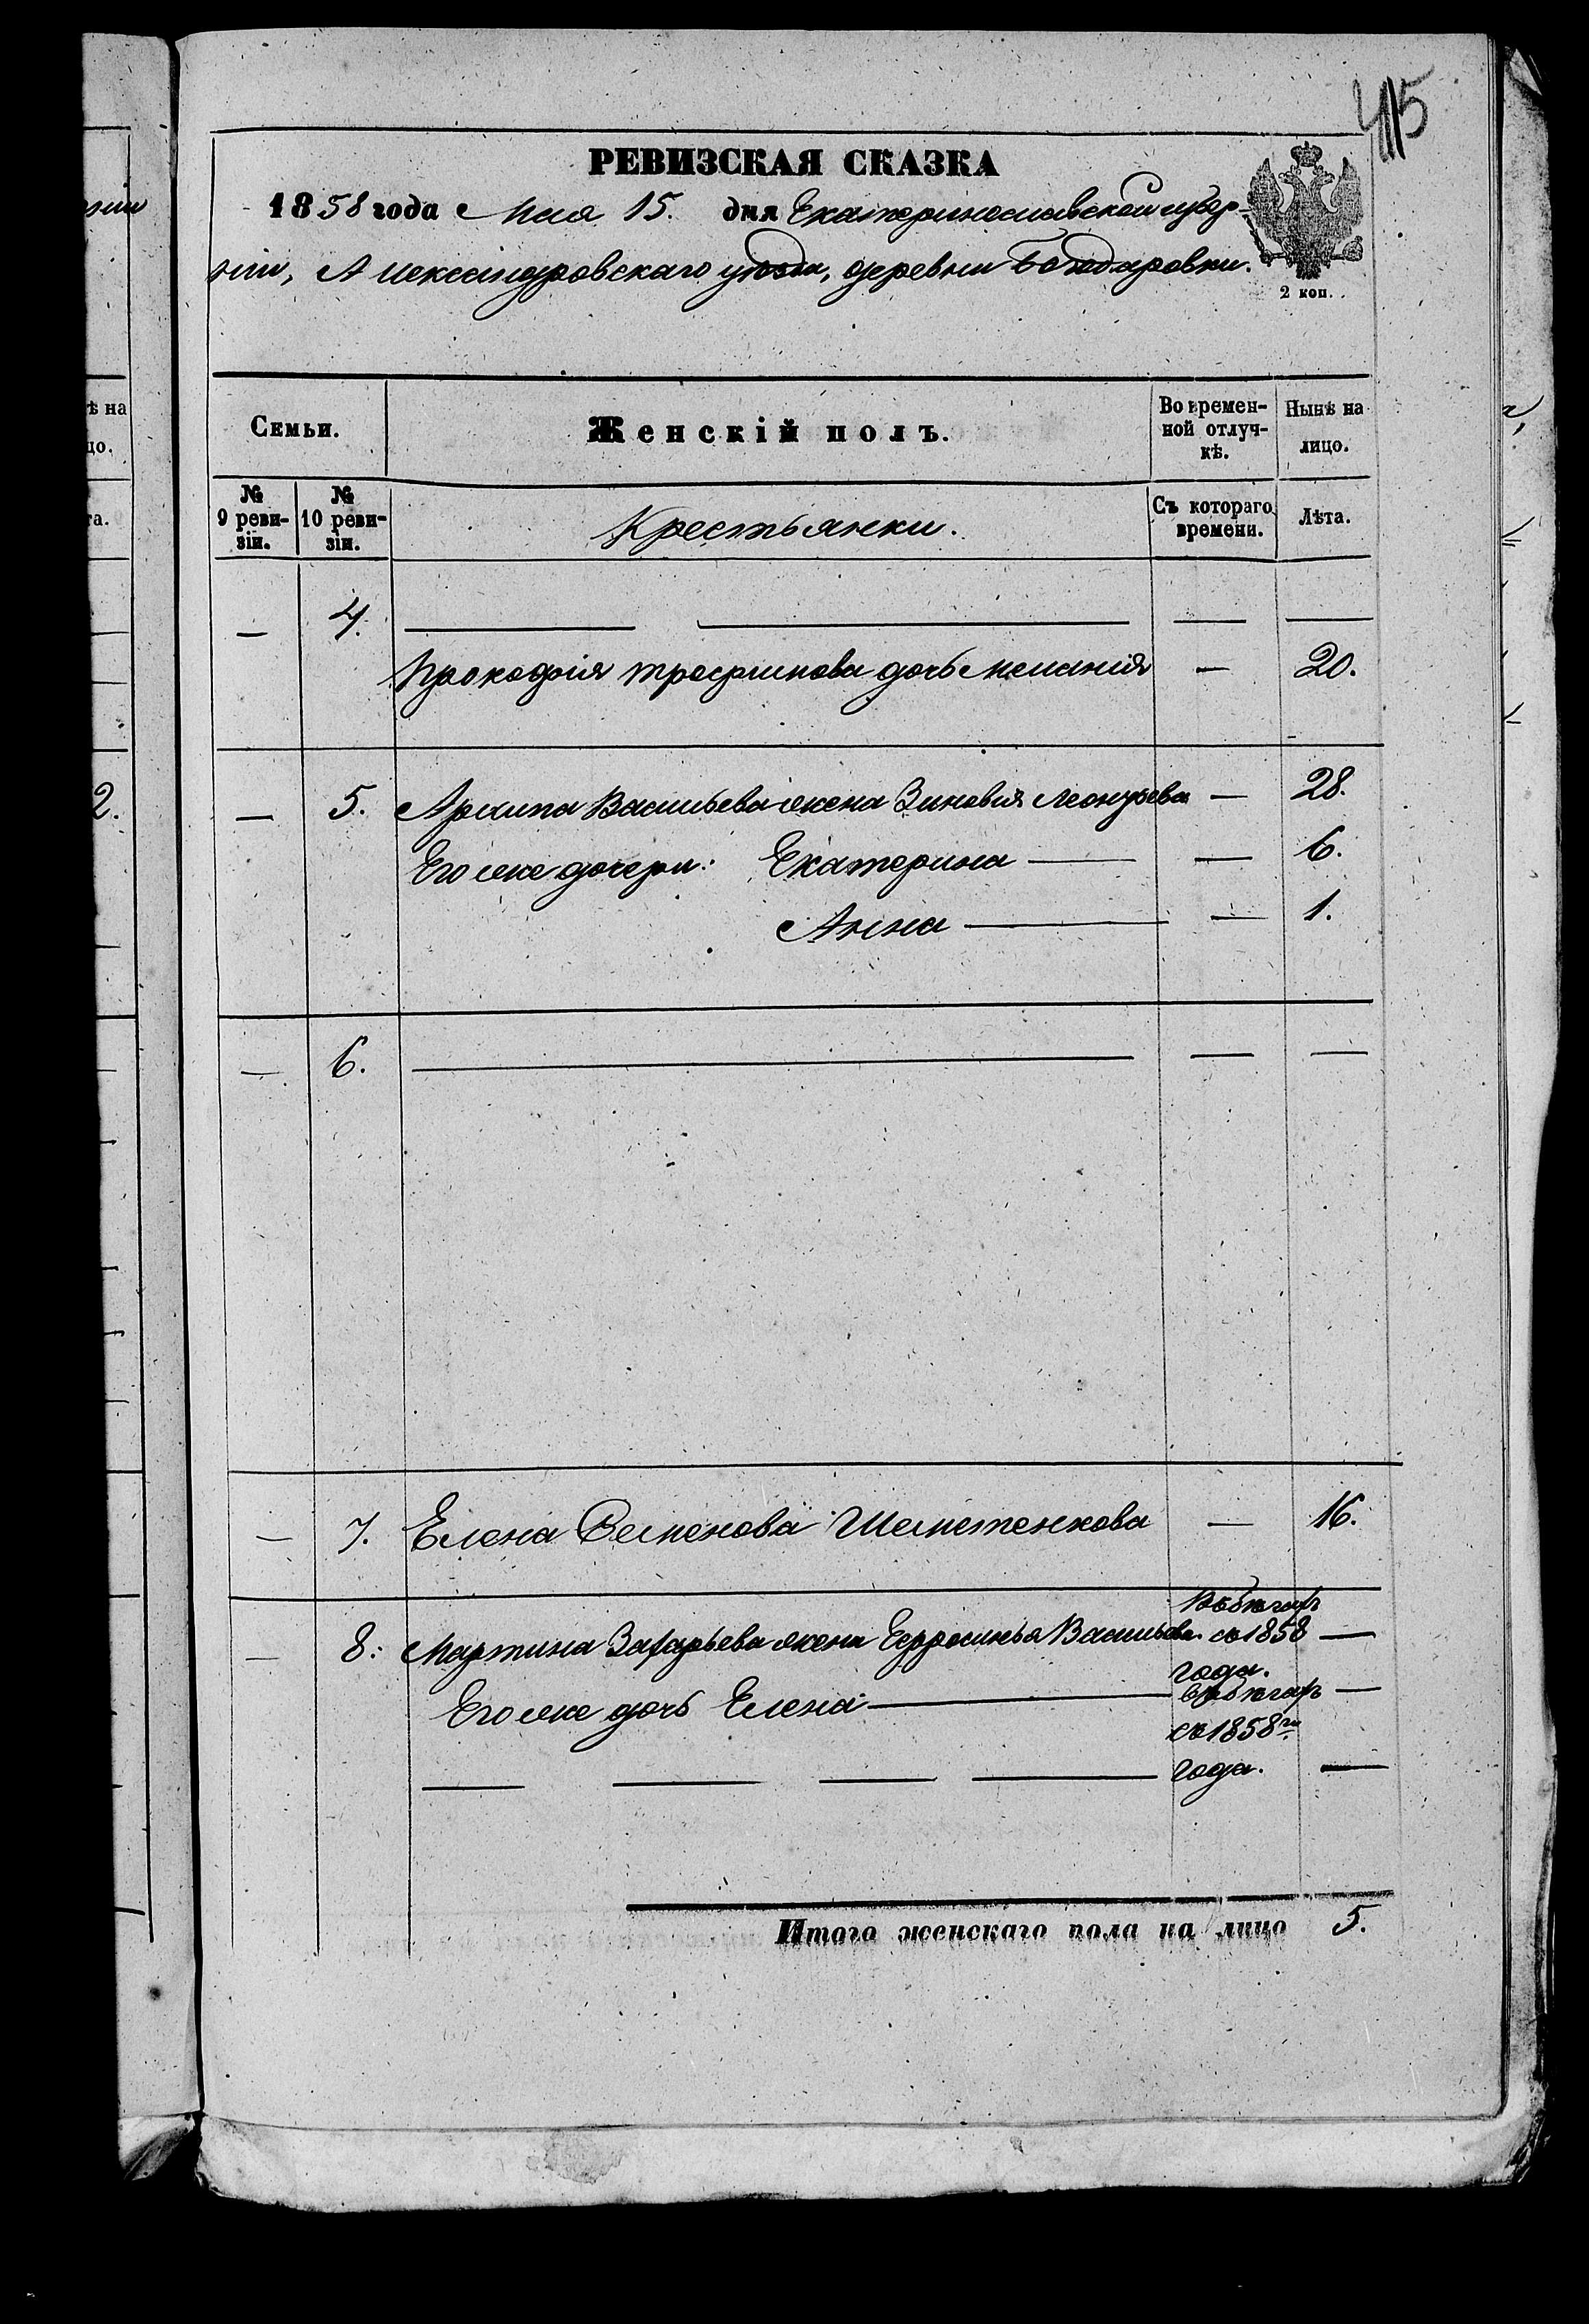 415
РЕВИЗСКАЯ СКАЗКА
1858 года Мая 15. дня Екатеринославской губер-
ніи, Александровскаго уѣзда, деревни Бондаровки.
2 коп.
Семьи.
Женскій полъ.
Во времен-
ной отлуч-
кѣ.
Нынѣ на
лицо.
№
9 реви-
зіи.
№
10 реви-
зіи.
Крестьянки.
Съ котораго
времени.
Лѣта.
— 4. — — — —
Трофимова дочь Меланія — 20.
— 5. Архипа Васильева жена Зиновія Леонтьева — 28.
Его же дочери: Екатерина — — 6.
Анна — — 1.
— 6. — — —
— 7. Елена Семенова — 16.
— 8. Мартина Захарьева жена Ефросинья Васильева
Въ бѣгахъ
съ 1858 —
года.
Его же дочь Елена — въ бѣгахъ —
съ 1858го
— — — — года. —
Итого женскаго пола на лицо 5.
ѣ на
цо.
та.
2.